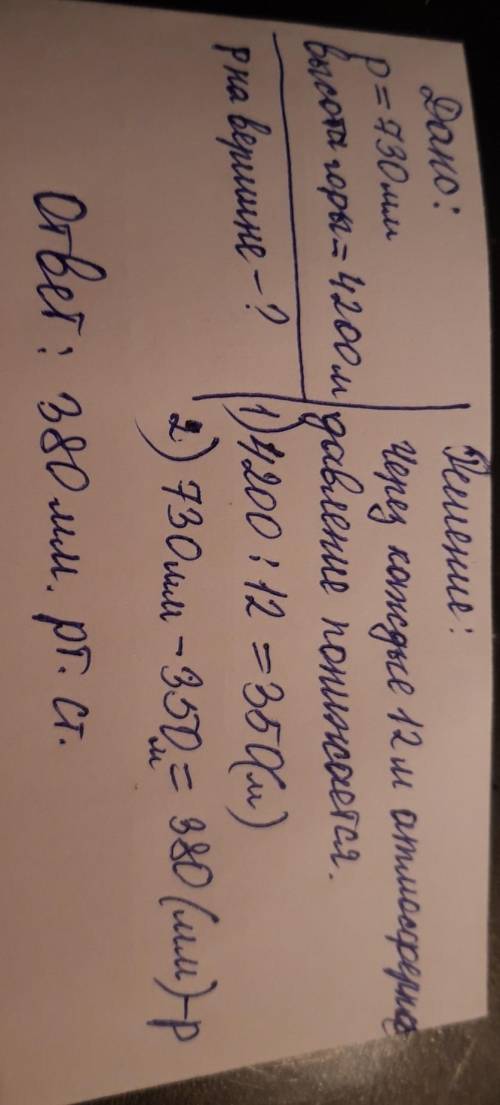 Дано:
р = 730 мм
высота горы = 4200 м
р на вершине - ?
Решение:
Через каждые 12 м атмосферно
давление понижается.
1) 4200 : 12 = 350 (м)
2) 730 мм - 350 м = 380 (мм) - р
Ответ: 380 мм. рт. ст.